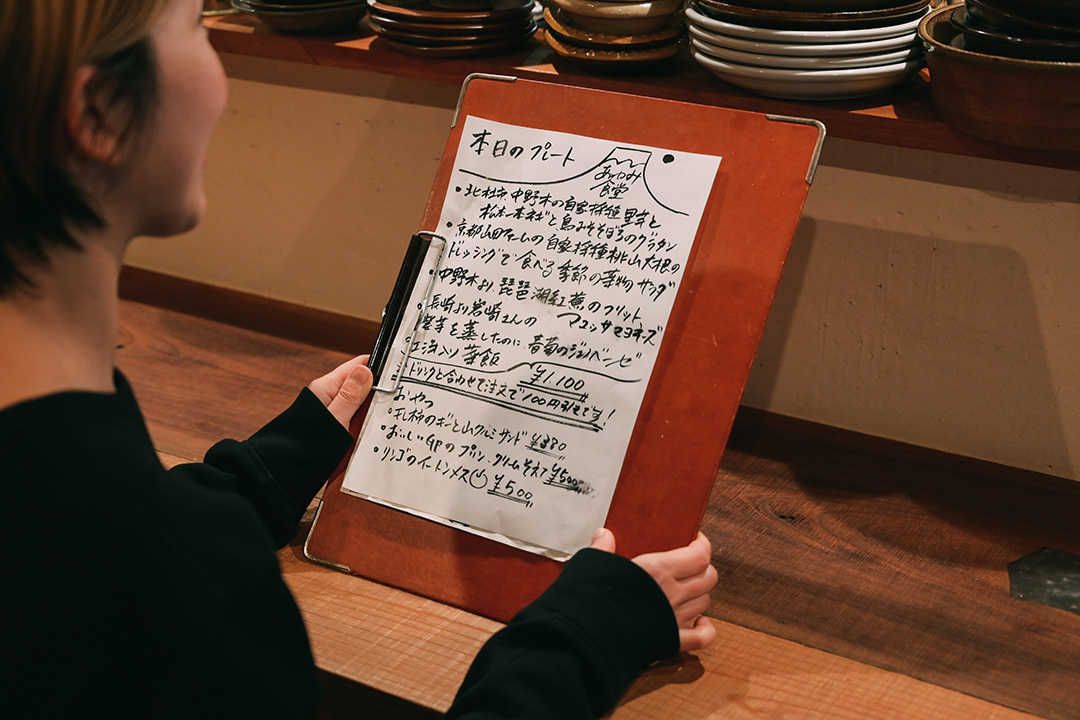 本日のプレート
あゆみ
食堂
・北杜市中野木の自家採種里芋と
松本一本ねぎと鳥みそそぼろのグラタン
・京都山田ファームの自家採種桃山大根の
ドレッシングで食べる季節の葉物サラダ
・中野木より琵琶湖紅蕪のフリット
マユッサマヨネーズ
・長崎より岩崎さんの
芋を蒸したのに、春菊のジェノベーゼ
入り 飯
¥1,100
ドリンクと合わせて注文で100円引きです!
おやつ
・干し柿のギーと山クルミサンド ¥380
・おいしいGPのプリン、クリームそえて ¥500
・リンゴのイートンメス ¥500